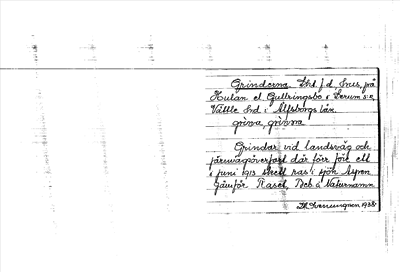 Grinderna. Lht. f. d. hus, på
Hulan el. Gullringsbo i Lerum s:n,
Vättle hd i Älfsborgs län.
grìnna, grìnna
Grindar vid landsväg och
järnvägöverfart där förr före ett
i juni 1913 skett ras i sjön Aspen
Jämför Raset, Beb & Naturnamn
1938